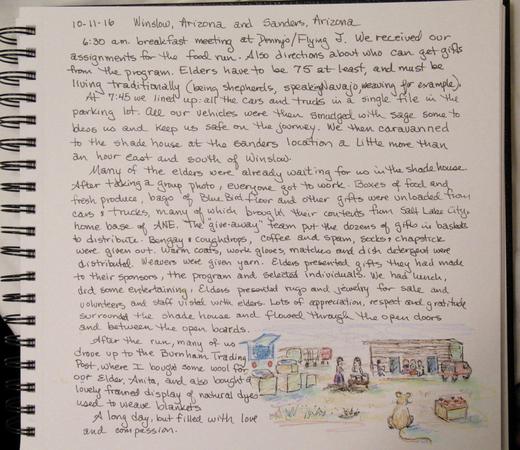 10-11-16 Winslow, Arizona and Sanders, Arizona
6:30 a.m. breakfast meeting at Denny's/Flying J. We received our
assignments for the food run. Also directions about who can get gifts
from the program. Elders have to be 75 at least, and must be
living traditionally (being shepherds, speaking Navajo, weaving for example).
At 7:45 we lined up all the cars and trucks in a single file in the
parking lot. All our vehicles were then smudged with sage smoke to
bless us and keep us safe on the journey. We then caravanned
to the shade house at the Sanders location a little more than
an hour east and south of Winslow.
Many of the elders were already waiting for us in the shadehouse.
After taking a group photo, everyone got to work. Boxes of food and
fresh produce, bags of Blue Bird flour and other gifts were unloaded from
cars & trucks, many of which brought their contents from Salt Lake City,
home base of ANE. The "give-away" team put the dozens of gifts in baskets
to distribute. Bengay & coughdrops, coffee and spam, socks & chapstick
were given out. Warm coats, work gloves, matches and dish detergent were
distributed. Weavers were given yarn. Elders presented gifts they had made
to their sponsors, the program and selected individuals. We had lunch,
did some entertaining, Elders presented rugs and jewelry for sale and
volunteers and staff visited with elders. Lots of appreciation, respect and gratitude
surrounded the shade house and flowed through the open doors
and between the open boards.
After the run, many of us
drove up to the Burnham Trading
Post, where I bought some wool for
our Elder, Anita, and also bought a
lovely framed display of natural dyes
used to weave blankets
A long day, but filled with love
and compassion.